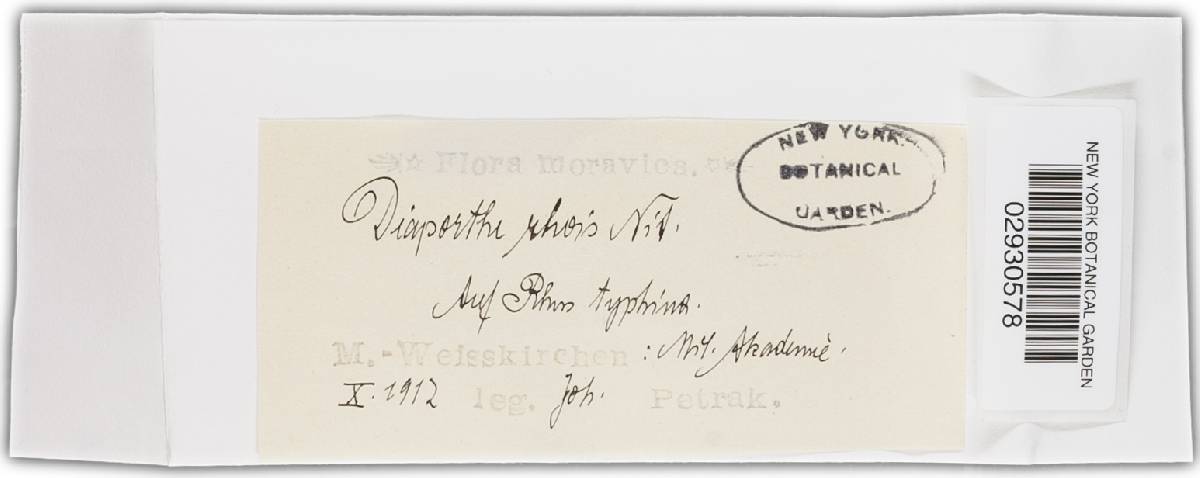 Flora moravica.
NEW YORK
BOTANICAL
GARDEN.
Diaporthe rhois Nit.
Auf Rhus typhina.
M.-Weisskirchen: Mil. Akademie.
X. 1912 leg. Joh. Petrak.
NEW YORK BOTANICAL GARDEN
02930578